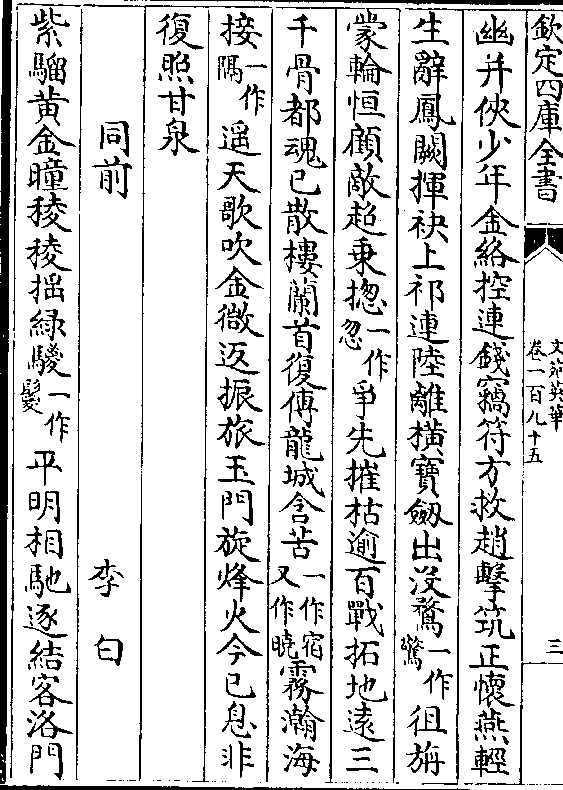 欽定四庫全書
文苑英華
卷一百九十五
三
幽并俠少年金絡控連錢竊符方救趙擊筑正懷燕輕
生辭鳳闕揮袂上祁連陸離橫寶劒出没鶩一作驚徂旃
蒙輪恒顧敵超乗揔一作忽爭先摧枯逾百戰拓地逺三
千骨都魂已散樓蘭首復傳龍城含苦一作宿又作曉霧瀚海
接一作隅遥天歌吹金微返振旅玉門旋烽火今已息非
復照甘泉
同前
李白
紫騮黄金瞳稜稜揺緑騣一作鬉平明相馳逐結客洛門